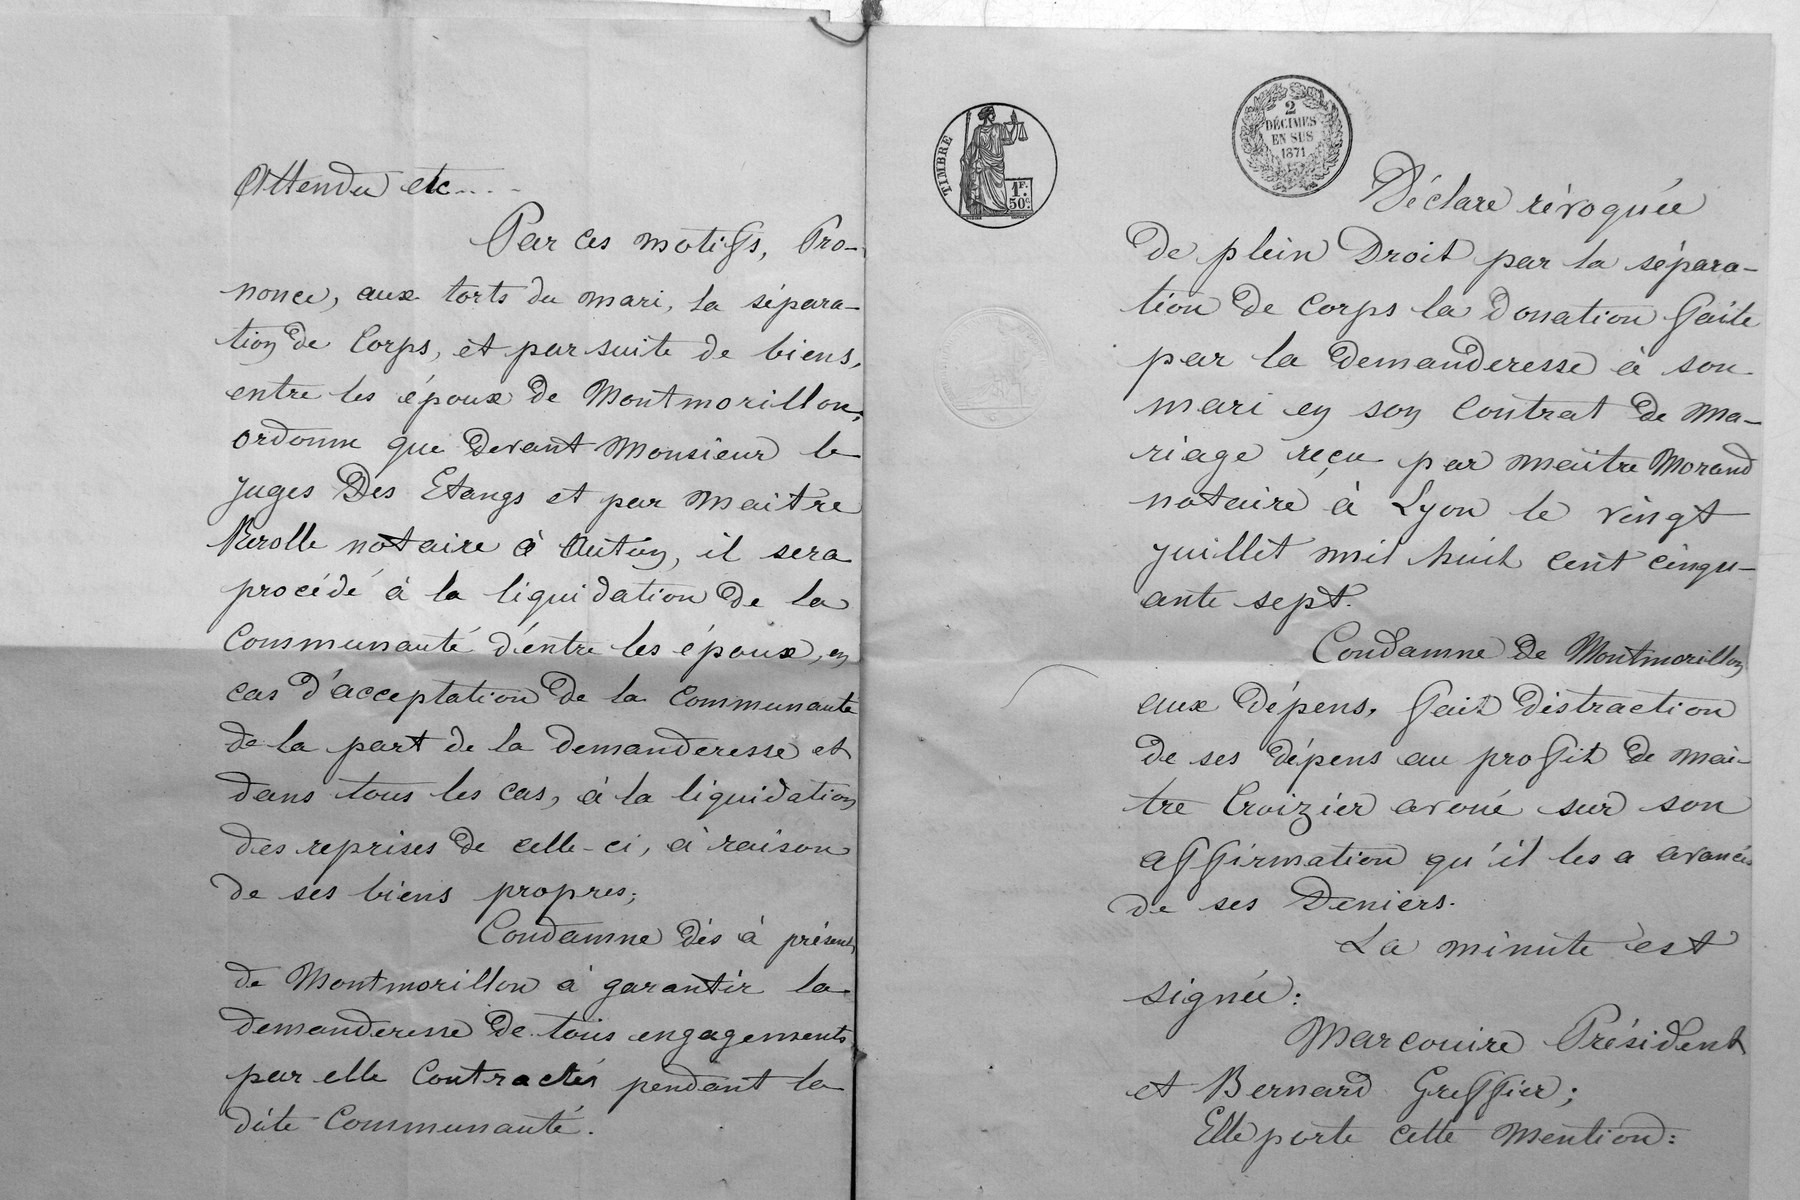 Attendu etc....
Par ces motifs, Pro-
nonce, aux torts du mari, la sépara-
tion de Corps, et par suite de biens,
entre les époux de Montmorillon,
ordonne que devant Monsieur le
juges Des Etangs et par Maitre
Nerolle notaire à Autun, il sera
procédé à la liquidation de la
Communauté d'entre les époux, en
cas d'acceptation de la Communauté
de la part de la demanderesse et
dans tous les cas, à la liquidation
des reprises de celle-ci, à raison
de ses biens propres;
Condamne dès à présent
de Montmorillon à garantir la
demanderesse de tous engagements
par elle Contractés pendant la
dite Communauté.
TIMBRE
1F.
50c.
2
DÉCIMES
EN SUS
1871
Déclare révoquée
de plein Droit par la sépara-
tion de Corps la Donation faite
par la demanderesse à son
mari en son Contrat de Ma-
riage reçu par maître Morand
notaire à Lyon le vingt
juillet mil huit cent cinqu-
ante sept.
Condamne de Montmorillon
aux dépens, fait distraction
de ses dépens au profit de Maî-
tre Croizier avoué sur son
affirmation qu'il les a avancés
de ses Deniers.
La minute est
signée:
Marcouire Président
et Bernard Greffier;
Elle porte cette Mention: